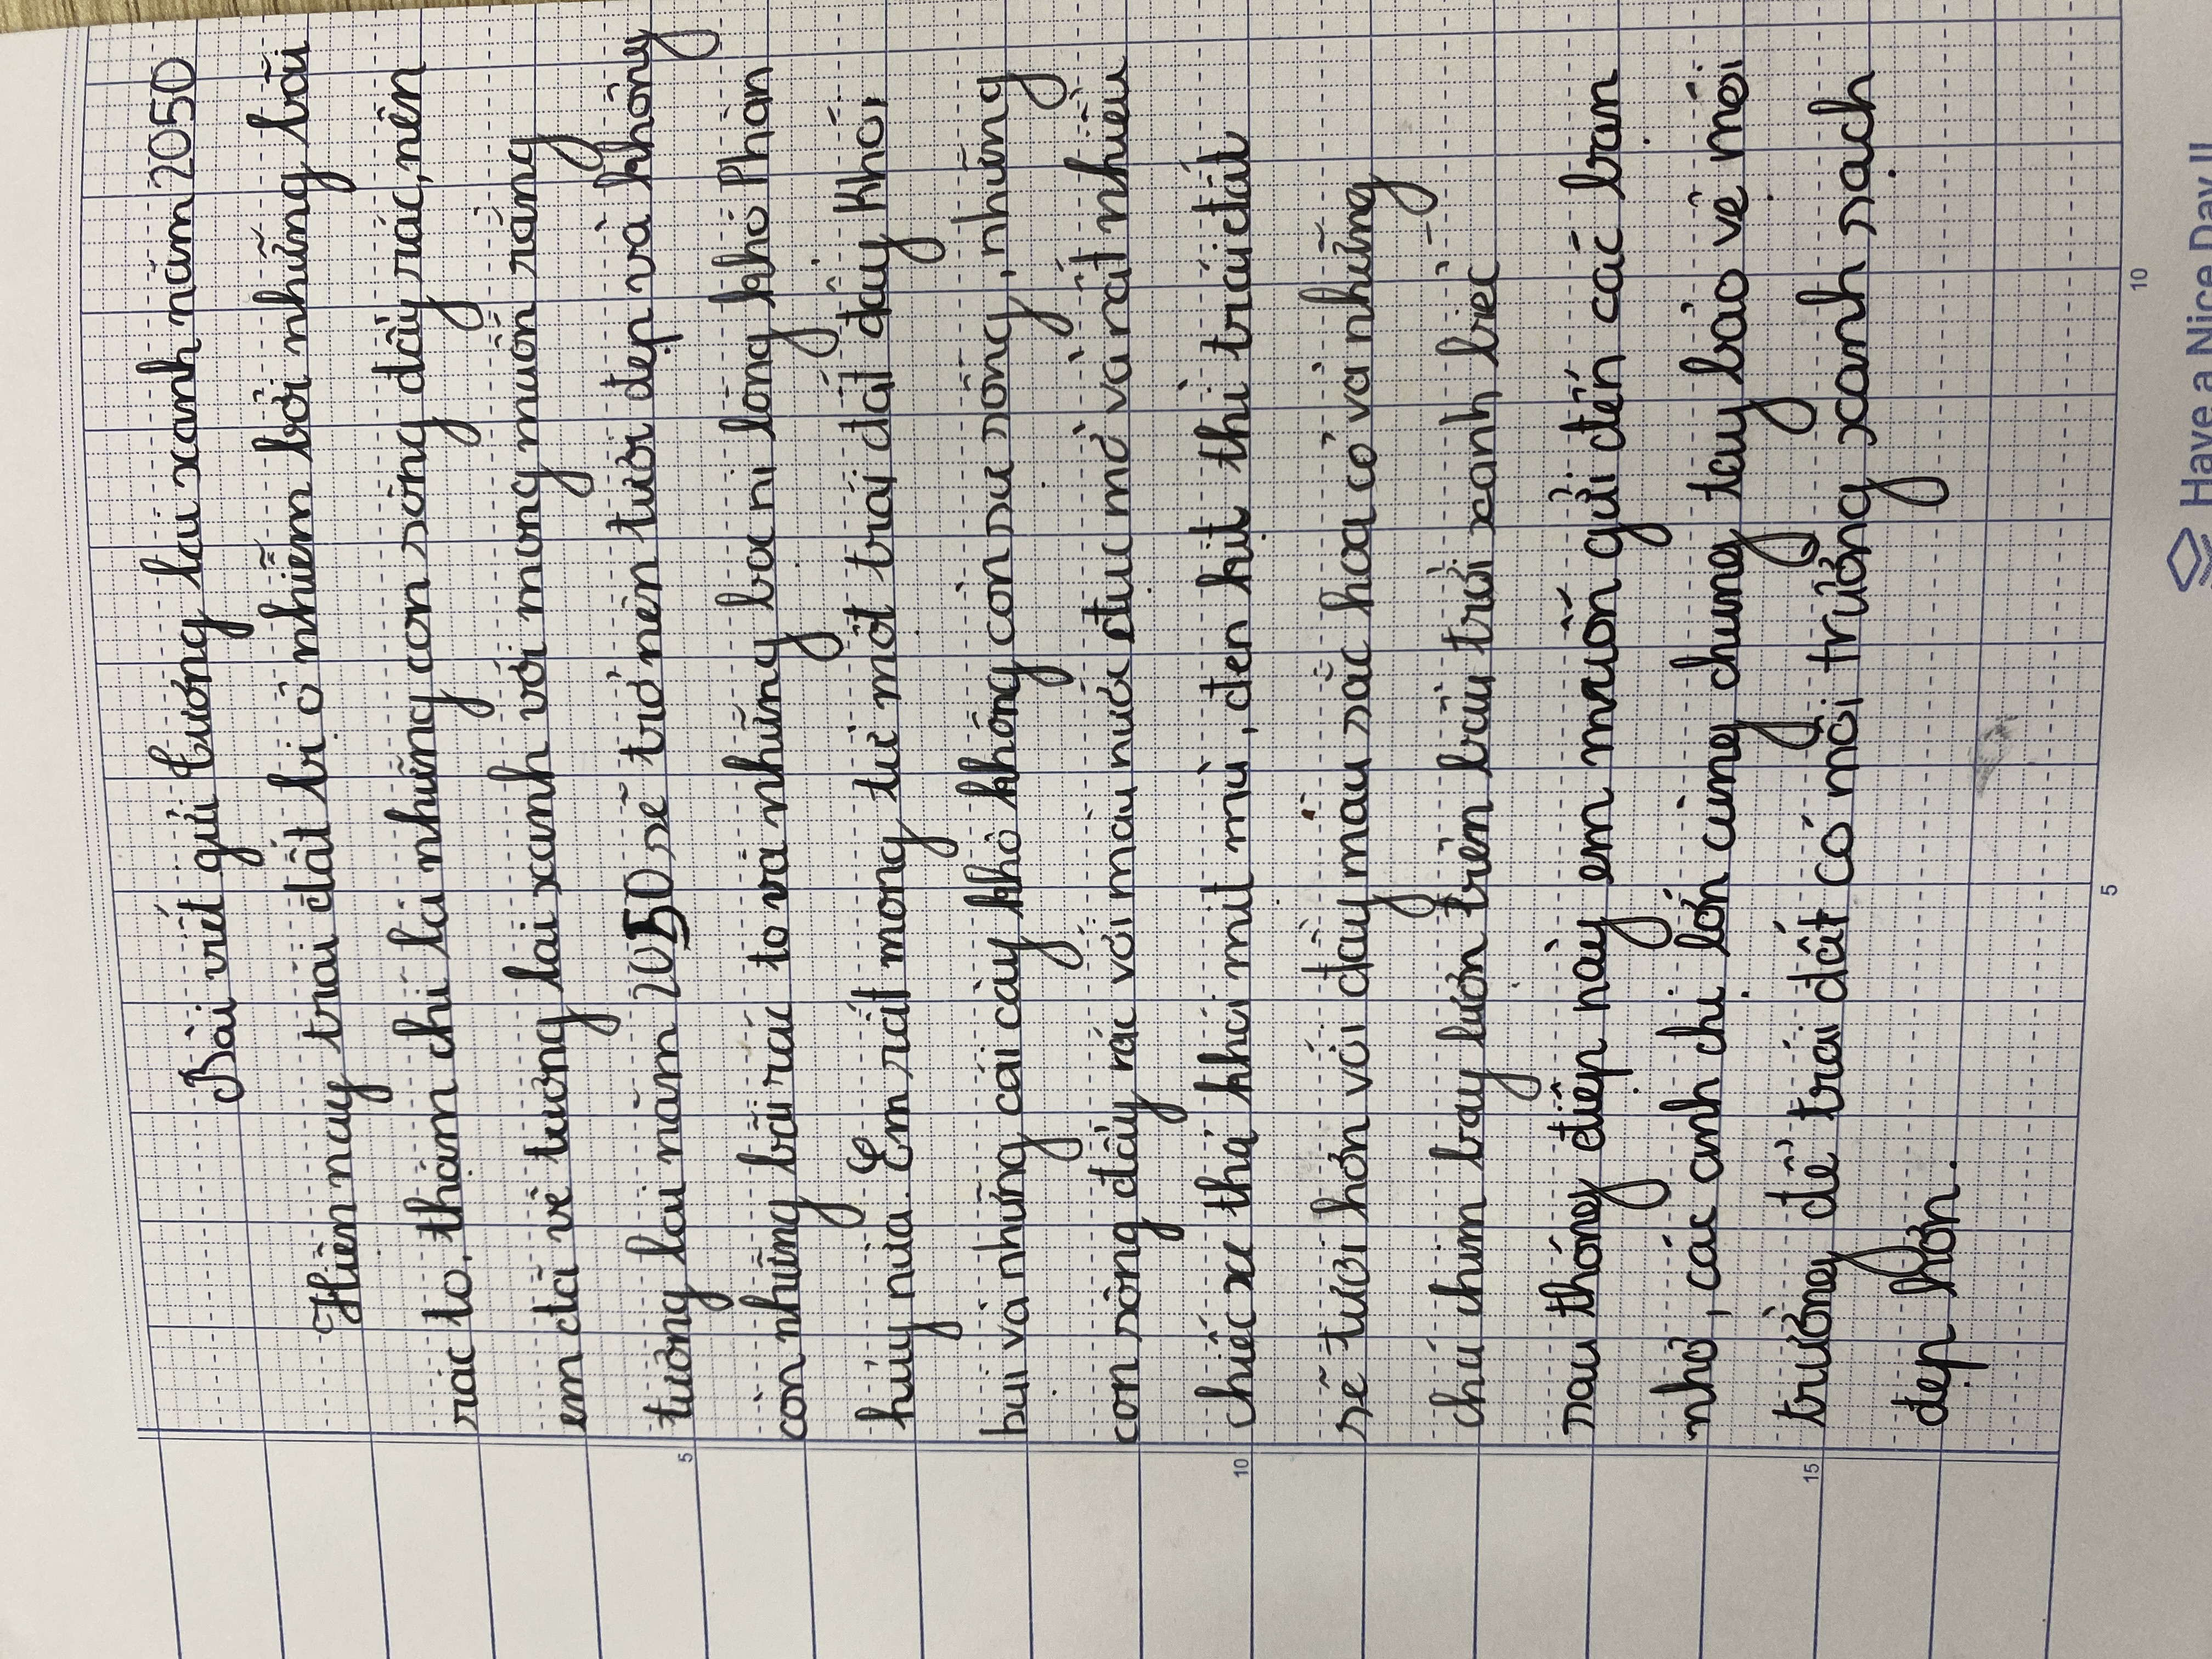 Bài viết gửi tương lai xanh năm 2050
Hiện nay trái đất bị ô nhiễm bởi những bãi
rác to, thậm chí là những con sông đầy rác, nên
em đã vẽ tương lai xanh với mong muốn rằng
tương lai năm 2050 sẽ trở nên tươi đẹp và không
còn những bãi rác to và những bao ni lông khó Phân
hủy nữa. Em rất mong từ một trái đất đầy Khói
bụi và những cái cây khô không còn sự sống, những
con sông đầy rác với màu nước đục mờ và rất nhiều
chiếc xe thả khói mịt mù, đen kịt thì trái đất
sẽ tươi hơn với đầy màu sắc hoa cỏ và những
chú chim bay lượn trên bầu trời xanh biếc
sau thông điệp này em muốn gửi đến các bạn
nhỏ, các anh chị lớn cùng chung tay bảo vệ môi
trường để trái đất có môi trường xanh sạch
đẹp hơn.
5
10
15
5
10
Have a Nice Day !!